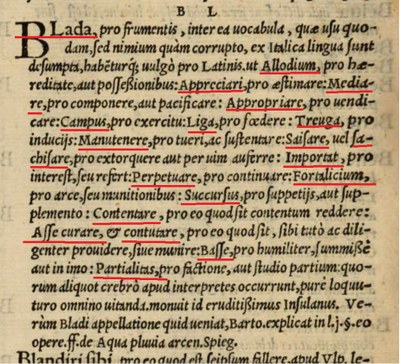 B L
BLada, pro frumentis, inter ea vocabula, quæ usu quo-
dam, sed nimium quàm corrupto, ex Italica lingua sunt
desumpta, habẽturq́; uulgò pro Latinis. ut Allodium, pro hæ-
reditate, aut possessionibus: Appreciari, pro æstimare: Media-
re, pro componere, aut pacificare: Appropriare, pro uendi-
care: Campus, pro exercitu: Liga, pro fœdere: Treuga, pro
inducijs: Manutenere, pro tueri, ac sustentare: Saisare, uel sa-
chisare, pro extorquere aut per uim auferre: Importat, pro
interest, seu refert: Perpetuare, pro continuare: Fortalicium,
pro arce, seu munitionibus: Succursus, pro suppetijs, aut sup-
plemento: Contentare, pro eo quod sit contentum reddere:
Asse curare, & contutare, pro eo quod sit, sibi tutò ac dili-
genter prouidere, siue munire: Basse, pro humiliter, summissẽ
aut in imo: Partialitas, pro factione, aut studio partium: quo-
rum aliquot crebrò apud interpretes occurrunt, purè loquu-
turo omnino uitanda. monuit id eruditißimus Insulanus. Ve-
rùm Bladi appellatione quid ueniat, Barto. explicat in l.j.§.eo
opere. ff. de Aqua pluuia arcen. Spieg.
Blandiri sibi, pro eo quod est, seipsum fallere, apud Vlp. le-